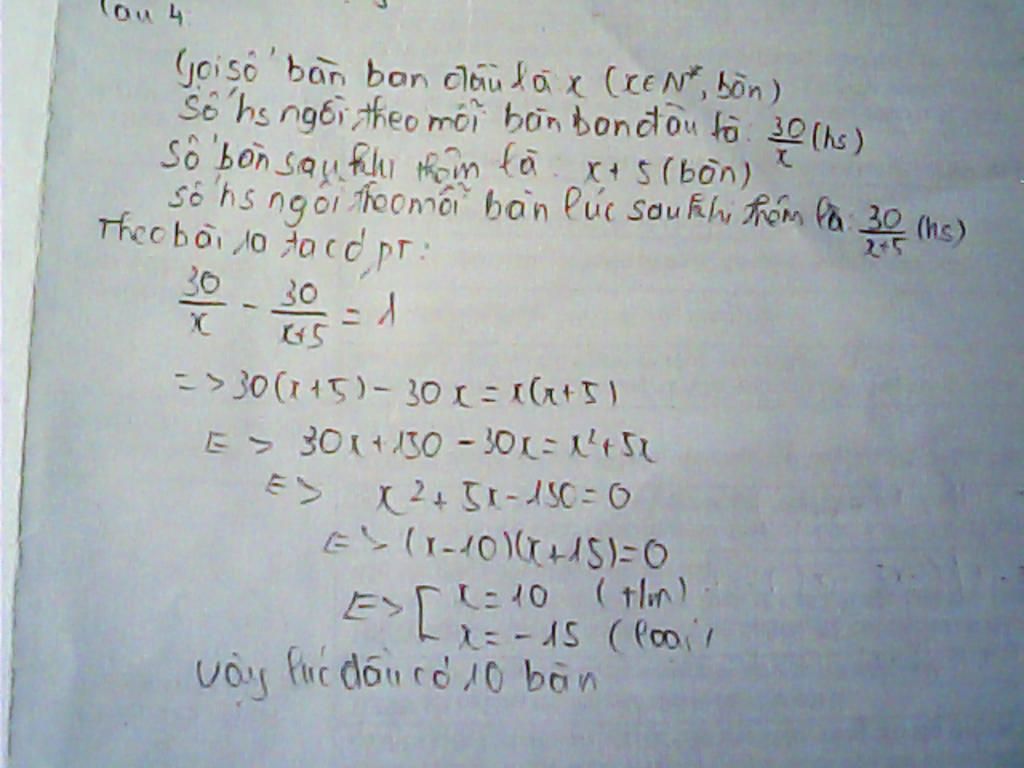 Câu 4
Gọi số bàn ban đầu là x (x∈N*, bàn)
Số hs ngồi theo mỗi bàn ban đầu là: 30/x (hs)
Số bàn sau khi thêm là: x + 5 (bàn)
số hs ngồi theo mỗi bàn lúc sau khi thêm là: 30/(x+5) (hs)
Theo bài ra ta có pt:
30/x - 30/(x+5) = 1
=> 30(x+5) - 30x = x(x+5)
<=> 30x + 150 - 30x = x² + 5x
<=> x² + 5x - 150 = 0
<=> (x-10)(x+15) = 0
<=> [ x = 10 (t/m)
x = -15 (loại)
Vậy lúc đầu có 10 bàn